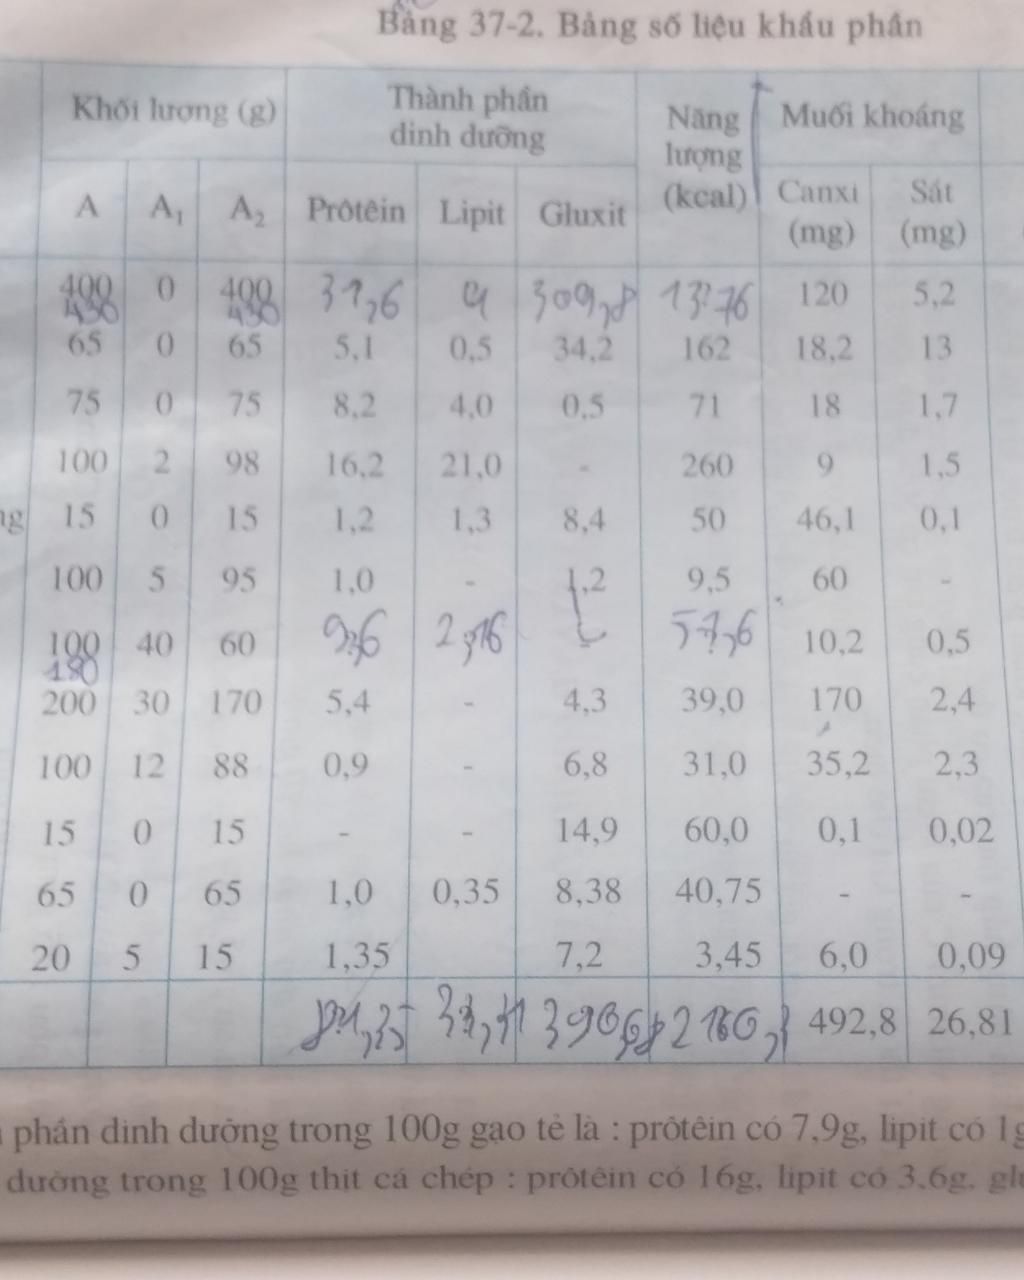 Bảng 37-2. Bảng số liệu khẩu phần
Khối lượng (g) Thành phần dinh dưỡng Năng lượng (kcal) Muối khoáng
A A1 A2 Prôtêin Lipit Gluxit Canxi (mg) Sắt (mg)
400 0 400 31,6 4 309,8 1376 120 5,2
450 450
65 0 65 5,1 0,5 34,2 162 18,2 13
75 0 75 8,2 4,0 0,5 71 18 1,7
100 2 98 16,2 21,0 - 260 9 1,5
ng 15 0 15 1,2 1,3 8,4 50 46,1 0,1
100 5 95 1,0 - 1,2 9,5 60 -
100 40 60 9,6 2,16 57,6 10,2 0,5
180
200 30 170 5,4 - 4,3 39,0 170 2,4
100 12 88 0,9 - 6,8 31,0 35,2 2,3
15 0 15 - - 14,9 60,0 0,1 0,02
65 0 65 1,0 0,35 8,38 40,75 - -
20 5 15 1,35 7,2 3,45 6,0 0,09
33,31 2160,3 492,8 26,81
phần dinh dưỡng trong 100g gạo tẻ là : prôtêin có 7,9g, lipit có 1g
dưỡng trong 100g thịt cá chép : prôtêin có 16g, lipit có 3,6g, glu